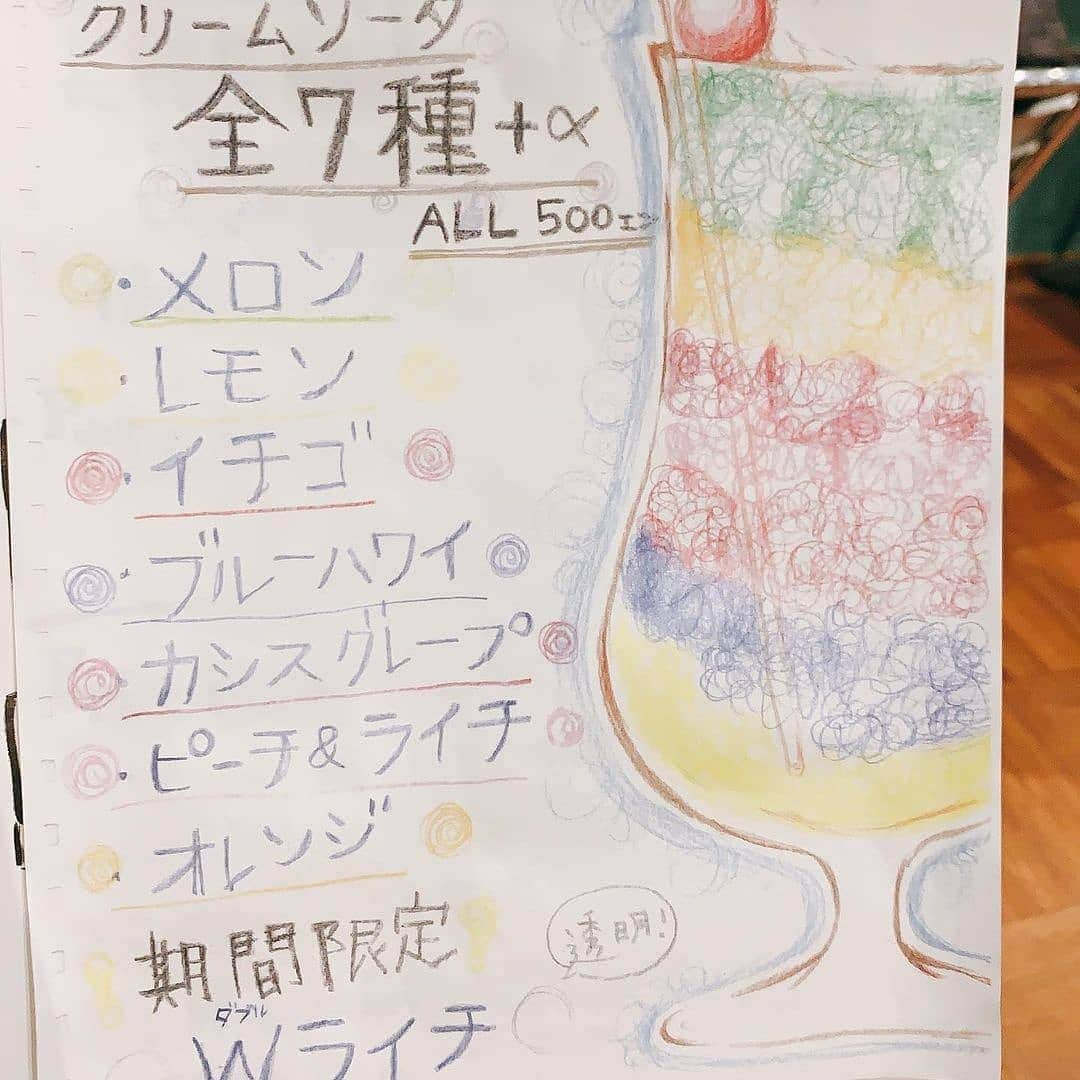 クリームソーダ
全7種+α
ALL 500エン
・メロン
・レモン
・イチゴ
・ブルーハワイ
・カシスグレープ
・ピーチ&ライチ
・オレンジ
期間限定
透明!
ダブル
Wライチ